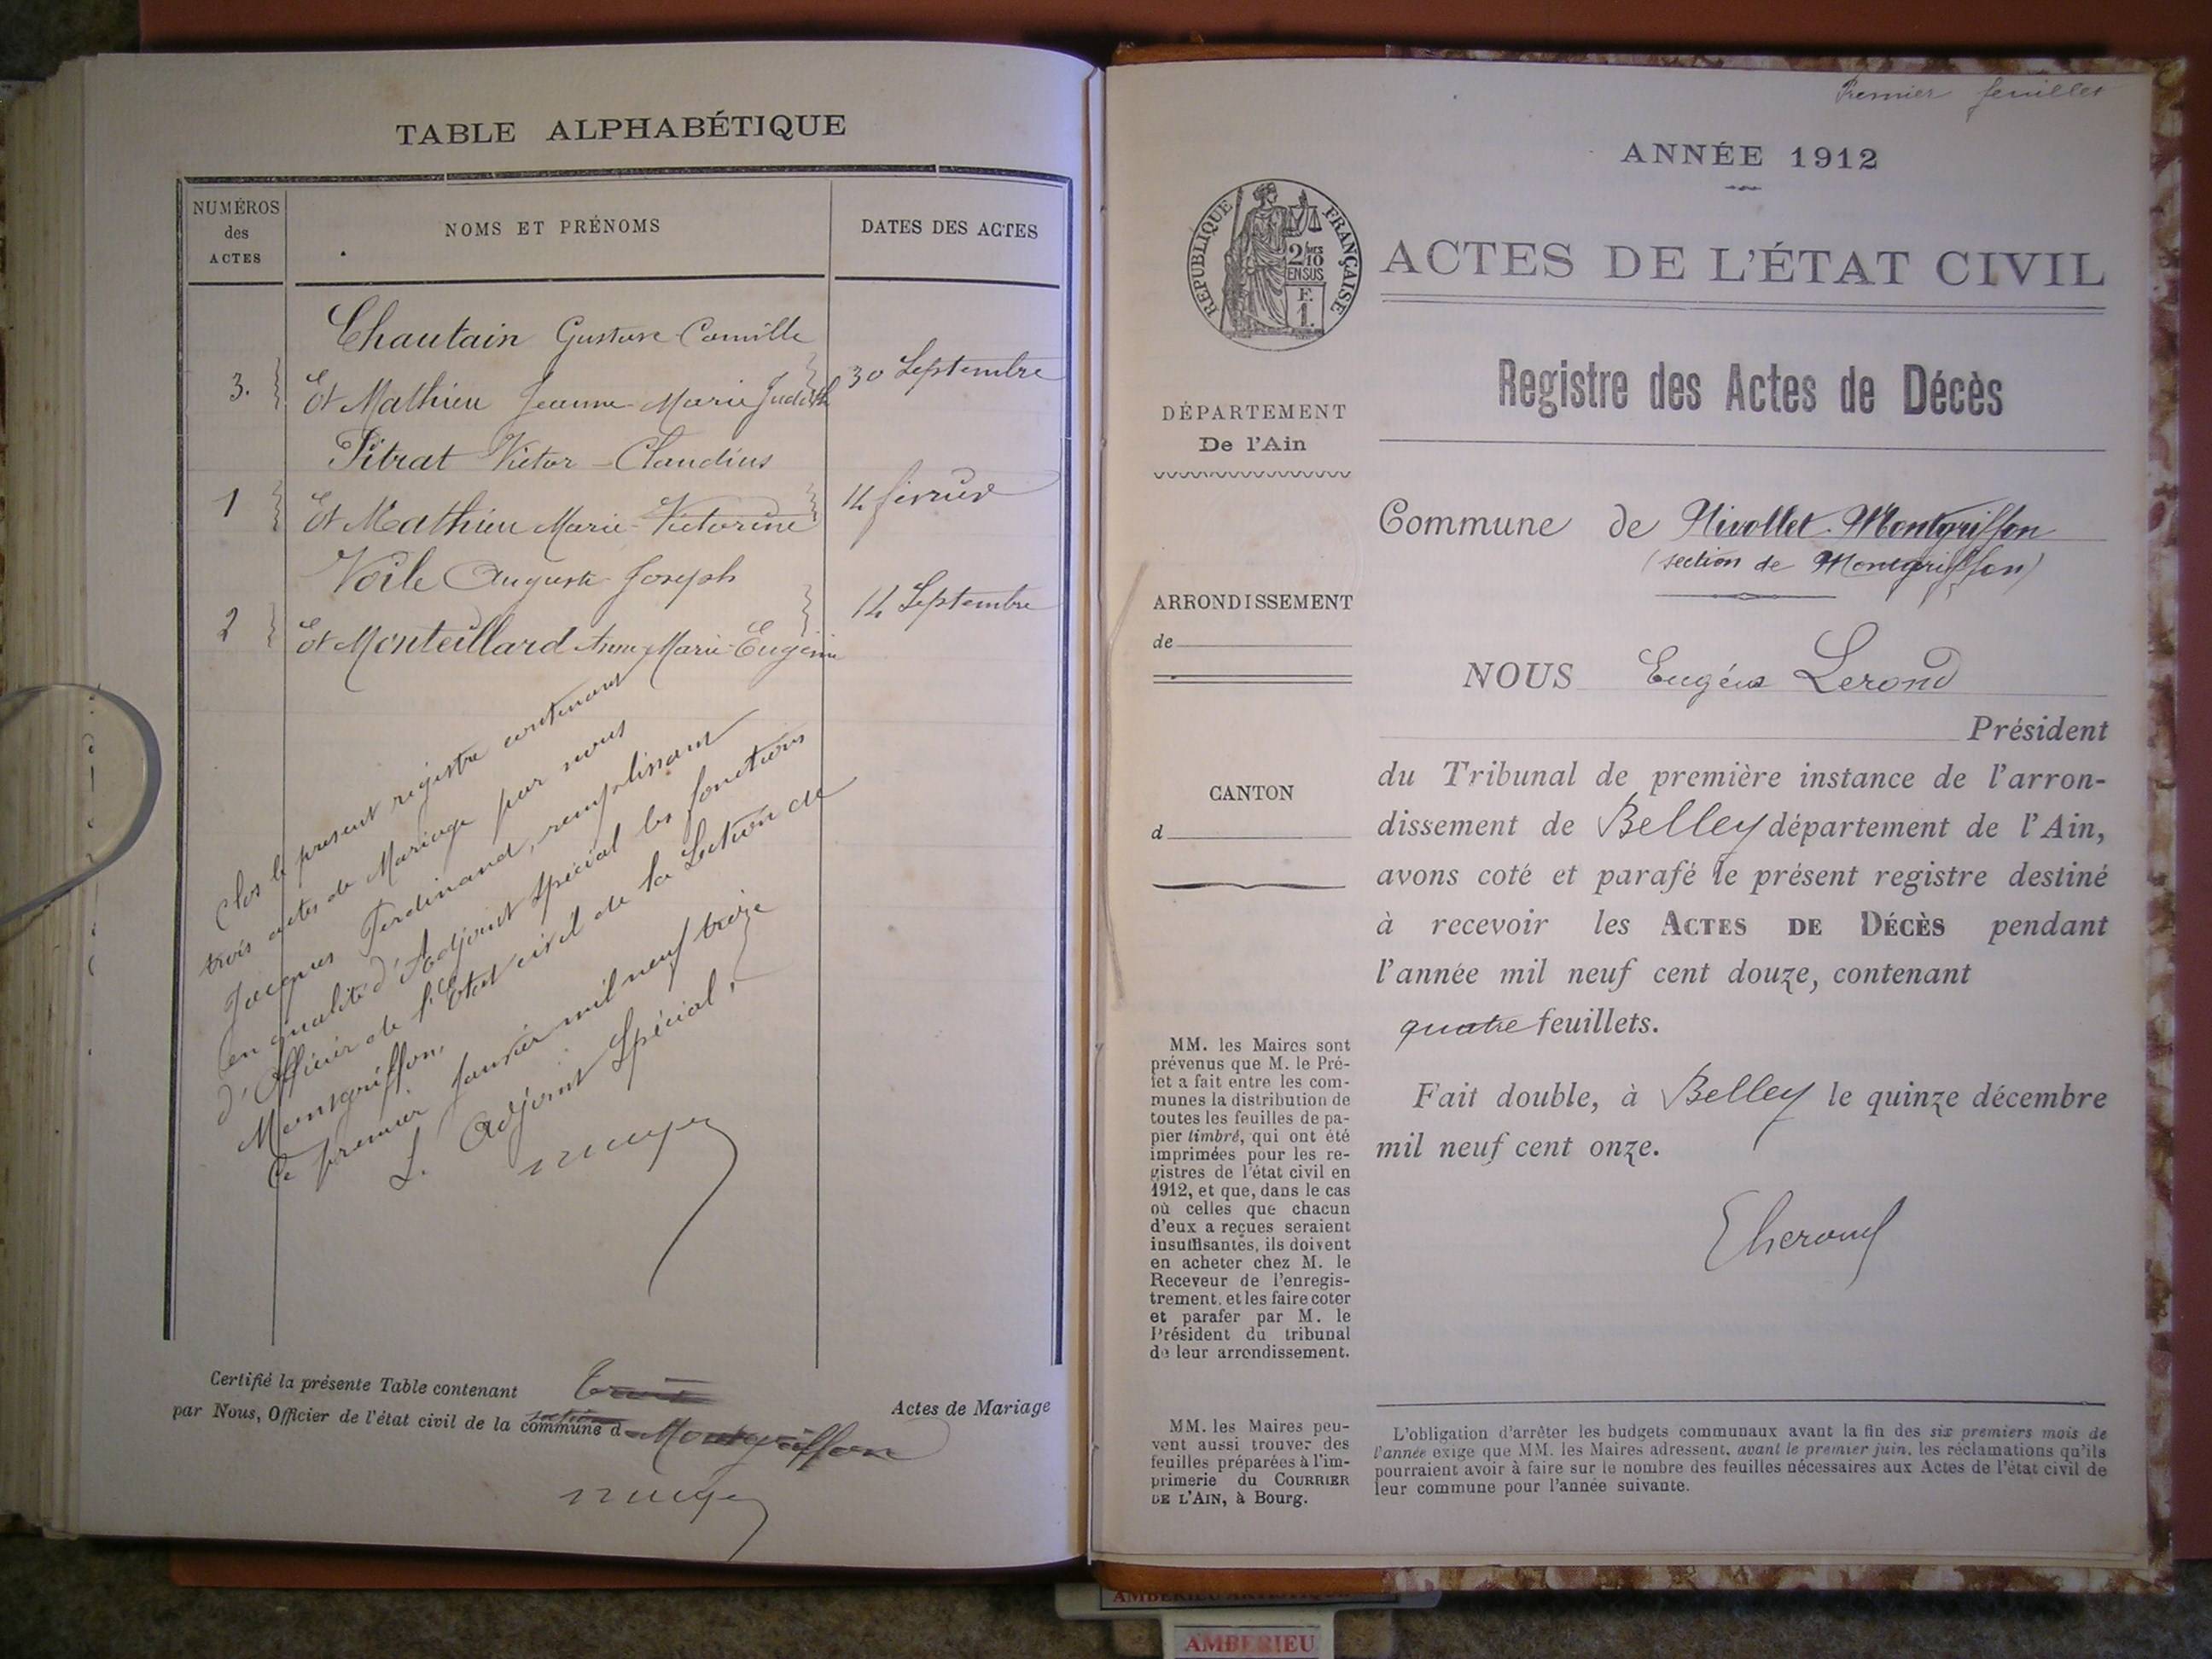 TABLE ALPHABÉTIQUE
NUMÉROS
des
ACTES
NOMS ET PRÉNOMS
DATES DES ACTES
Chautain Gustave Camille
3. Et Mathieu Jeanne-Marie Judith 30 Septembre
Pitrat Victor-Claudius
1 Et Mathieu Marie-Victorine 14 février
Voile Auguste Joseph
2 Et Monteillard Anne Marie-Eugénie 14 Septembre
Clos le présent registre contenant
trois actes de Mariage par nous
Jacques Ferdinand, remplissant
en qualité d'Adjoint Spécial les fonctions
d'Officier de l'Etat civil de la Section de
Montgriffon,
Ce premier Janvier mil neuf treize
L. Adjoint Spécial,
Certifié la présente Table contenant trois Actes de Mariage
par Nous, Officier de l'état civil de la commune d section Montgriffon
Premier feuillet
ANNÉE 1912
RÉPUBLIQUE FRANÇAISE
2/10
EN SUS
F.
1.
ACTES DE L'ÉTAT CIVIL
Registre des Actes de Décès
DÉPARTEMENT
De l'Ain
ARRONDISSEMENT
de
CANTON
d
MM. les Maires sont
prévenus que M. le Pré-
fet a fait entre les com-
munes la distribution de
toutes les feuilles de pa-
pier timbré, qui ont été
imprimées pour les re-
gistres de l'état civil en
1912, et que, dans le cas
où celles que chacun
d'eux a reçues seraient
insuffisantes, ils doivent
en acheter chez M. le
Receveur de l'enregis-
trement, et les faire coter
et parafer par M. le
Président du tribunal
de leur arrondissement.
MM. les Maires peu-
vent aussi trouver des
feuilles préparées à l'im-
primerie du COURRIER
DE L'AIN, à Bourg.
Commune de Nivollet-Montgriffon
(section de Montgriffon)
NOUS Eugène Lerond
Président
du Tribunal de première instance de l'arron-
dissement de Belley département de l'Ain,
avons coté et parafé le présent registre destiné
à recevoir les ACTES DE DÉCÈS pendant
l'année mil neuf cent douze, contenant
quatre feuillets.
Fait double, à Belley le quinze décembre
mil neuf cent onze.
L'obligation d'arrêter les budgets communaux avant la fin des six premiers mois de
l'année exige que MM. les Maires adressent, avant le premier juin, les réclamations qu'ils
pourraient avoir à faire sur le nombre des feuilles nécessaires aux Actes de l'état civil de
leur commune pour l'année suivante.
AMBERIEU